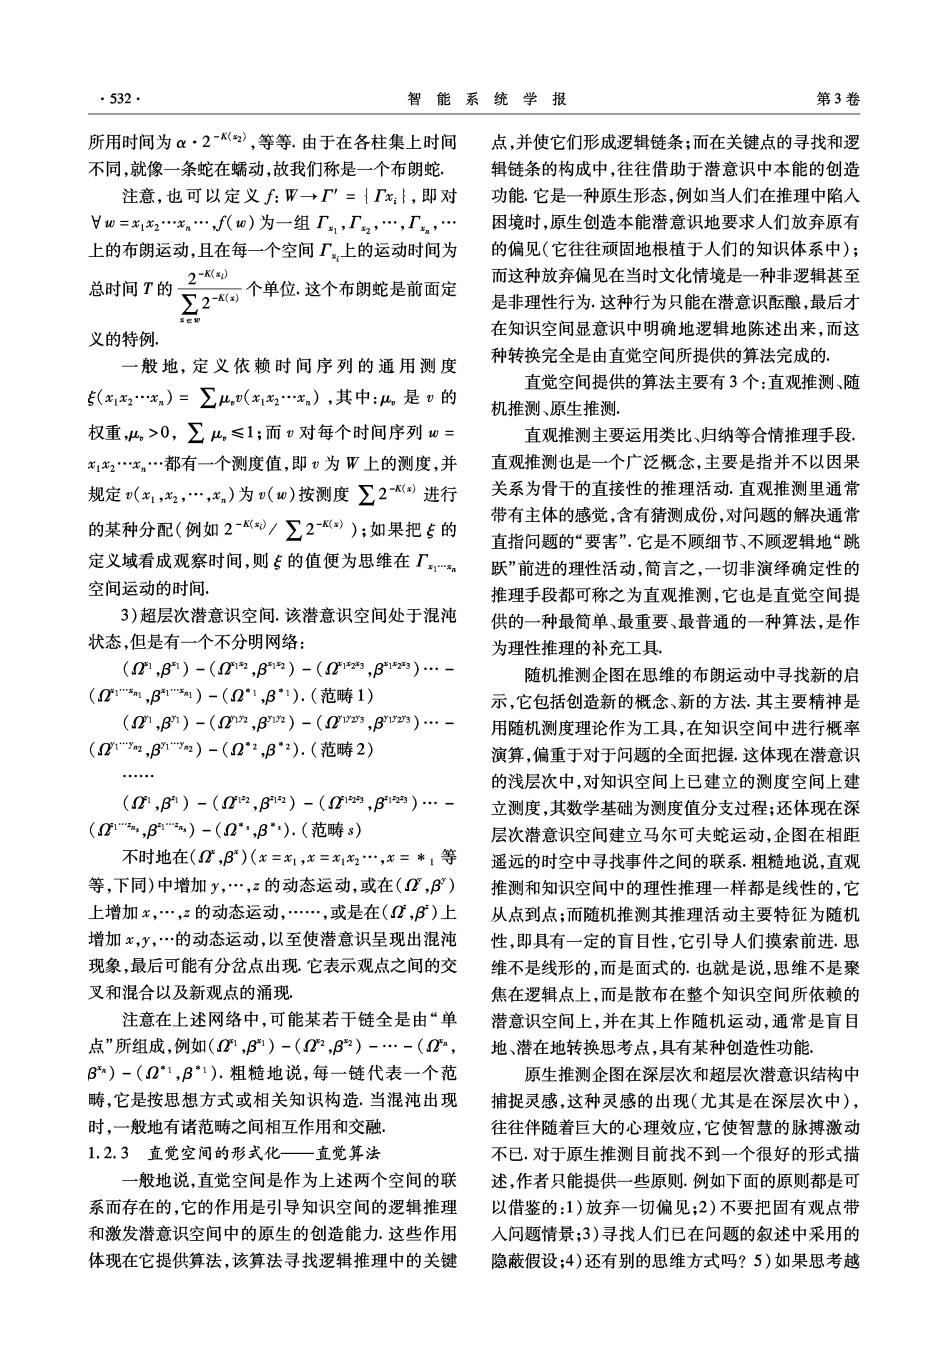 ·532·
智 能 系 统 学 报
第3卷
所用时间为 α·2^{-K(x_2)},等等. 由于在各柱集上时间
不同,就像一条蛇在蠕动,故我们称是一个布朗蛇.
注意,也可以定义 f: W→Γ′ = {Γx_i},即对
∀w = x_1x_2⋯x_n⋯,f(w)为一组 Γ_{x_1},Γ_{x_2},⋯,Γ_{x_n},⋯
上的布朗运动,且在每一个空间 Γ_{x_i}上的运动时间为
总时间 T 的 2^{-K(x_i)} / ∑_{x∈w} 2^{-K(x)} 个单位. 这个布朗蛇是前面定
义的特例.
一般地,定义依赖时间序列的通用测度
ξ(x_1x_2⋯x_n) = ∑μ_v v(x_1x_2⋯x_n),其中:μ_v 是 v 的
权重,μ_v >0, ∑ μ_v ≤1;而 v 对每个时间序列 w =
x_1x_2⋯x_n⋯都有一个测度值,即 v 为 W 上的测度,并
规定 v(x_1,x_2,⋯,x_n)为 v(w)按测度 ∑2^{-K(x)} 进行
的某种分配(例如 2^{-K(x_i)}/ ∑2^{-K(x)});如果把 ξ 的
定义域看成观察时间,则 ξ 的值便为思维在 Γ_{x_1⋯x_n}
空间运动的时间.
3)超层次潜意识空间. 该潜意识空间处于混沌
状态,但是有一个不分明网络:
(Ω^{x_1},β^{x_1}) - (Ω^{x_1x_2},β^{x_1x_2}) - (Ω^{x_1x_2x_3},β^{x_1x_2x_3})⋯ -
(Ω^{x_1⋯x_{n_1}},β^{x_1⋯x_{n_1}}) - (Ω^{*_1},β^{*_1}). (范畴1)
(Ω^{y_1},β^{y_1}) - (Ω^{y_1y_2},β^{y_1y_2}) - (Ω^{y_1y_2y_3},β^{y_1y_2y_3})⋯ -
(Ω^{y_1⋯y_{n_2}},β^{y_1⋯y_{n_2}}) - (Ω^{*_2},β^{*_2}). (范畴2)
⋯⋯
(Ω^{z_1},β^{z_1}) - (Ω^{z_1z_2},β^{z_1z_2}) - (Ω^{z_1z_2z_3},β^{z_1z_2z_3})⋯ -
(Ω^{z_1⋯z_{n_s}},β^{z_1⋯z_{n_s}}) - (Ω^{*_s},β^{*_s}). (范畴s)
不时地在(Ω^x,β^x)(x = x_1,x = x_1x_2⋯,x = *_1 等
等,下同)中增加 y,⋯,z 的动态运动,或在(Ω^y,β^y)
上增加 x,⋯,z 的动态运动,⋯⋯,或是在(Ω^z,β^z)上
增加 x,y,⋯的动态运动,以至使潜意识呈现出混沌
现象,最后可能有分岔点出现. 它表示观点之间的交
叉和混合以及新观点的涌现.
注意在上述网络中,可能某若干链全是由“单
点”所组成,例如(Ω^{x_1},β^{x_1}) - (Ω^{x_2},β^{x_2}) - ⋯ - (Ω^{x_n},
β^{x_n}) - (Ω^{*_1},β^{*_1}). 粗糙地说,每一链代表一个范
畴,它是按思想方式或相关知识构造. 当混沌出现
时,一般地有诸范畴之间相互作用和交融.
1.2.3 直觉空间的形式化——直觉算法
一般地说,直觉空间是作为上述两个空间的联
系而存在的,它的作用是引导知识空间的逻辑推理
和激发潜意识空间中的原生的创造能力. 这些作用
体现在它提供算法,该算法寻找逻辑推理中的关键
点,并使它们形成逻辑链条;而在关键点的寻找和逻
辑链条的构成中,往往借助于潜意识中本能的创造
功能. 它是一种原生形态,例如当人们在推理中陷入
困境时,原生创造本能潜意识地要求人们放弃原有
的偏见(它往往顽固地根植于人们的知识体系中);
而这种放弃偏见在当时文化情境是一种非逻辑甚至
是非理性行为. 这种行为只能在潜意识酝酿,最后才
在知识空间显意识中明确地逻辑地陈述出来,而这
种转换完全是由直觉空间所提供的算法完成的.
直觉空间提供的算法主要有3个:直观推测、随
机推测、原生推测.
直观推测主要运用类比、归纳等合情推理手段.
直观推测也是一个广泛概念,主要是指并不以因果
关系为骨干的直接性的推理活动. 直观推测里通常
带有主体的感觉,含有猜测成份,对问题的解决通常
直指问题的“要害”. 它是不顾细节、不顾逻辑地“跳
跃”前进的理性活动,简言之,一切非演绎确定性的
推理手段都可称之为直观推测,它也是直觉空间提
供的一种最简单、最重要、最普通的一种算法,是作
为理性推理的补充工具.
随机推测企图在思维的布朗运动中寻找新的启
示,它包括创造新的概念、新的方法. 其主要精神是
用随机测度理论作为工具,在知识空间中进行概率
演算,偏重于对于问题的全面把握. 这体现在潜意识
的浅层次中,对知识空间上已建立的测度空间上建
立测度,其数学基础为测度值分支过程;还体现在深
层次潜意识空间建立马尔可夫蛇运动,企图在相距
遥远的时空中寻找事件之间的联系. 粗糙地说,直观
推测和知识空间中的理性推理一样都是线性的,它
从点到点;而随机推测其推理活动主要特征为随机
性,即具有一定的盲目性,它引导人们摸索前进. 思
维不是线形的,而是面式的. 也就是说,思维不是聚
焦在逻辑点上,而是散布在整个知识空间所依赖的
潜意识空间上,并在其上作随机运动,通常是盲目
地、潜在地转换思考点,具有某种创造性功能.
原生推测企图在深层次和超层次潜意识结构中
捕捉灵感,这种灵感的出现(尤其是在深层次中),
往往伴随着巨大的心理效应,它使智慧的脉搏激动
不已. 对于原生推测目前找不到一个很好的形式描
述,作者只能提供一些原则. 例如下面的原则都是可
以借鉴的:1)放弃一切偏见;2)不要把固有观点带
入问题情景;3)寻找人们已在问题的叙述中采用的
隐蔽假设;4)还有别的思维方式吗? 5)如果思考越